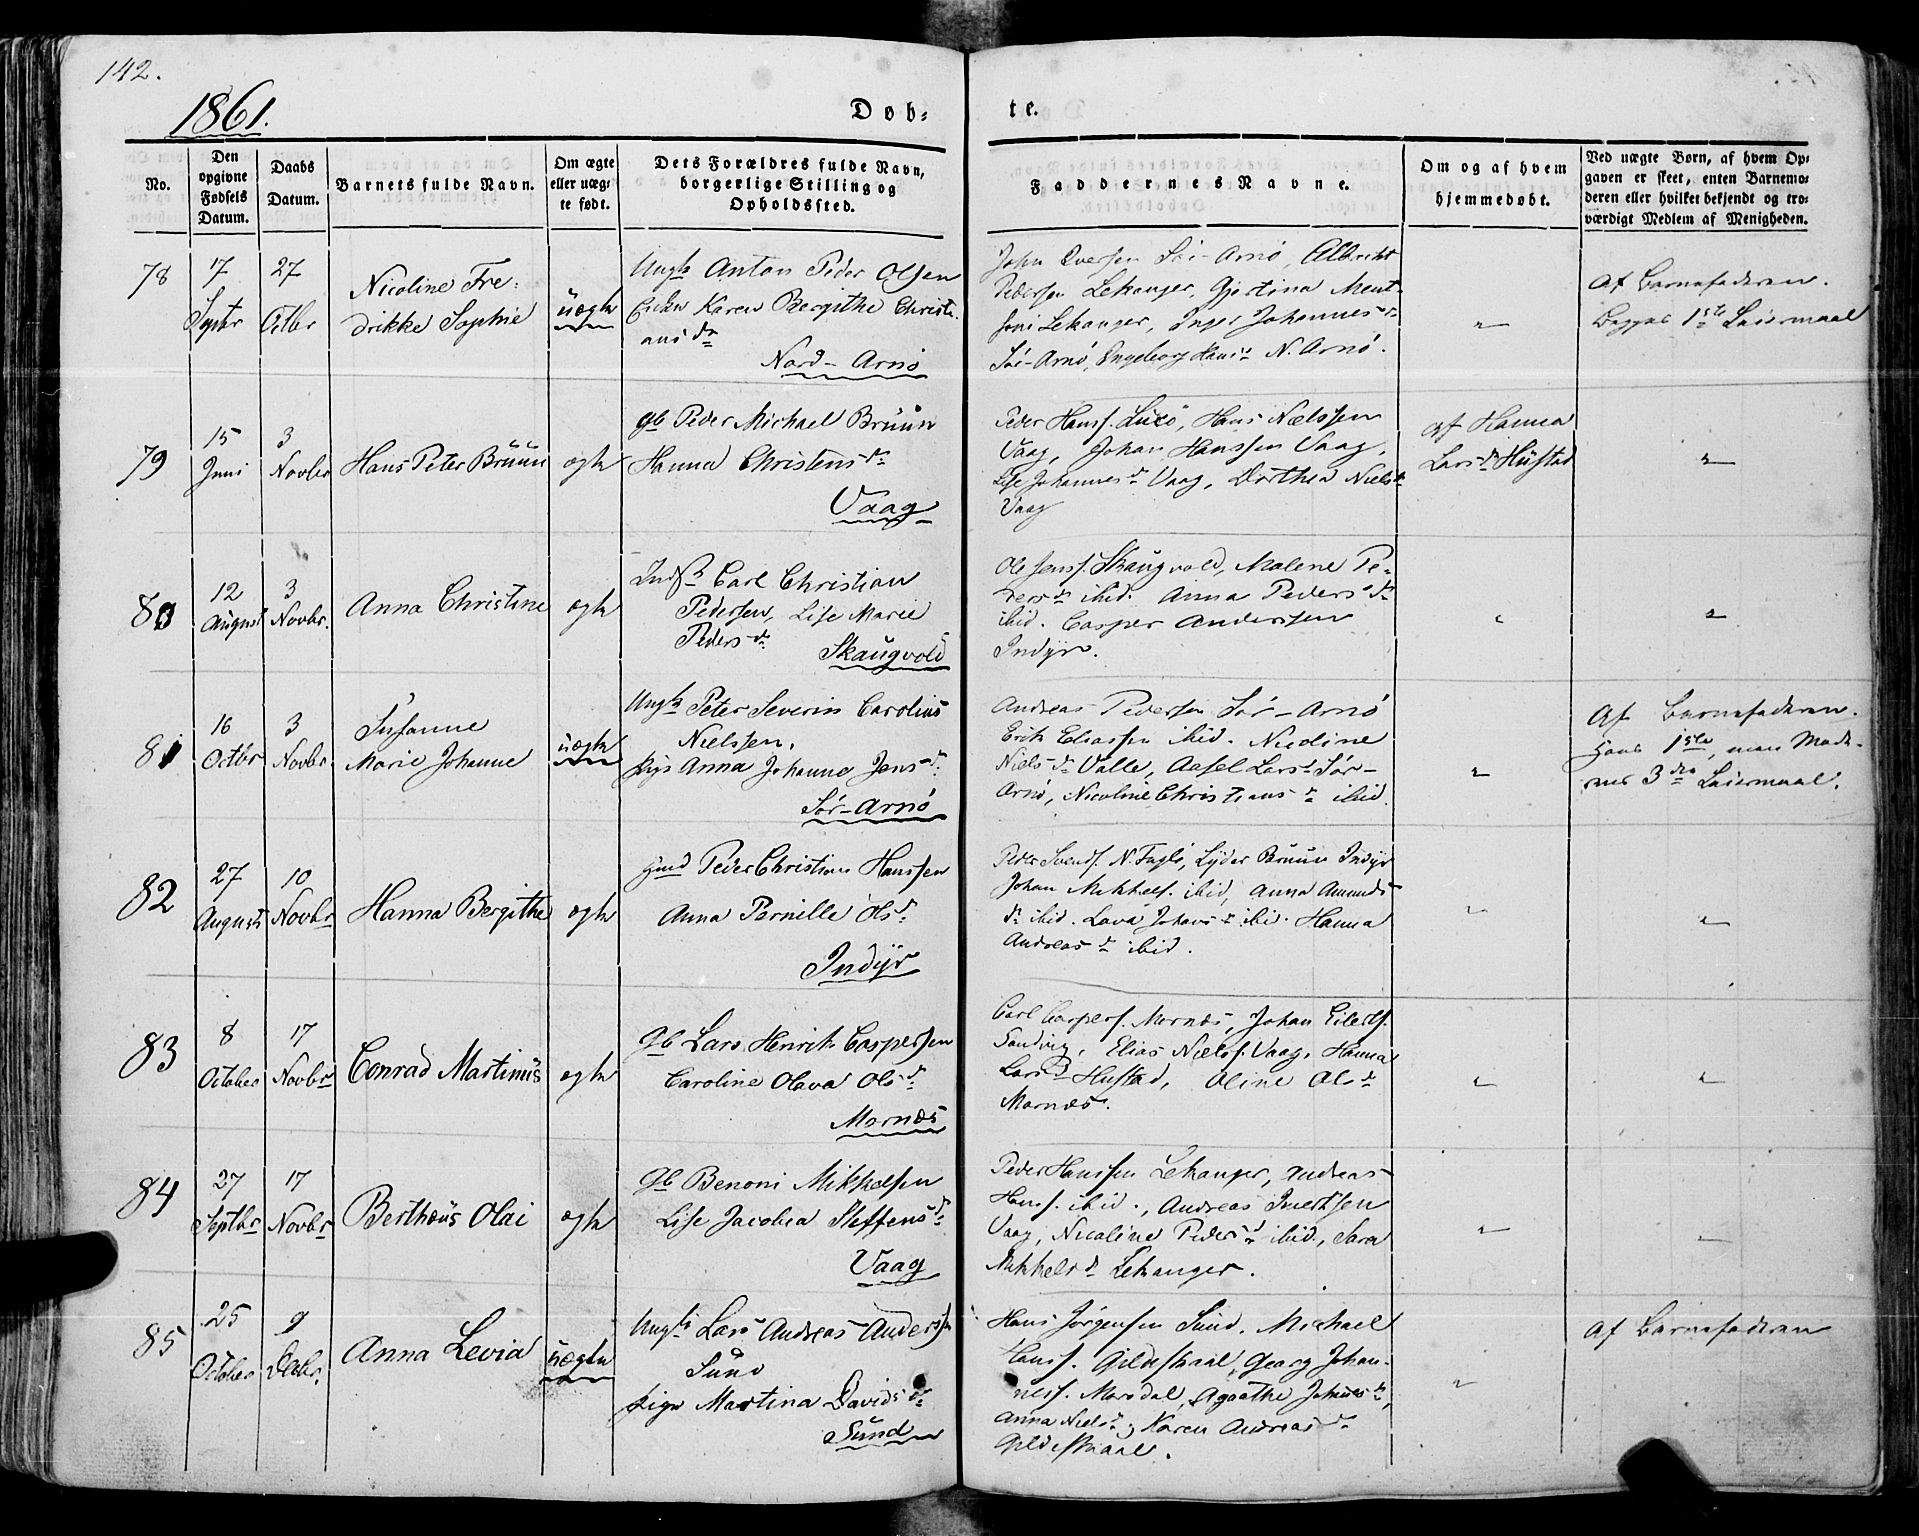 142.
1861.
Døb-
te.
No.
Den opgivne Fødsels Datum.
Daabs Datum.
Barnets fulde Navn.
Om ægte eller uæg-
te født.
Dets Forældres fulde Navn,
borgerlige Stilling og
Opholdssted.
Faddernes Navne.
Om og af hvem
hjemmedøbt.
Ved uægte Børn, af hvem Op-
gaven er skeet, enten Barnemo-
deren eller hvilket bekjendt og tro-
værdigt Medlem af Menigheden.
78
17 Septbr
27 Octbr
Nicoline Fre-
drikke Sophie
uægte
Ungk Anton Peder Olsen
Karen Bergithe Christi-
ans dr
Nord-Arnö
John Iversen Sör-Arnö, Albrecht
Pedersen Lekanger, Gjertina Ment-
Lekanger, Inger Johannes dr
Sör-Arnö, Engeborg Hans dr N. Arnö.
"
Af Barnefaderen.
Begges 1ste Leiermaal
79
15 Juni
3 Novbr
Hans Peter Bruun
ægte
Gb Peder Michael Bruun
Hanna Christens dr
Vaag
Peder Hanss. , Hans Nielssen
Vaag, Johan Hanssen Vaag,
Lise Johannes dr Vaag, Dorthea Niels dr
Vaag
af Hanna
Lars dr Hustad
"
80
12 August
3 Novbr.
Anna Christine
ægte
Inds Carl Christian
Pedersen, Lise Marie
Peders dr
Skaugvold
Ole Jenss. Skaugvold, Malene Pe-
ders dr ibid. Anna Peders dr
ibid. Casper Anderssen
Indyr.
"
"
81
16 Octbr
3 Novbr
Susanne
Marie Johanne
uægte
Ungk Peter Severin Carolius
Nielssen.
Pige Anna Johanna Jens dr
Sör-Arnö
Andreas Pedersen Sör-Arnö
Erik Eliassen ibid. Nicoline
Niels dr Valle, Aasel Lars dr Sör-
Arnö, Nicoline Christians dr ibid.
"
Af Barnefaderen.
Hans 1ste, men Mode-
rens 3die Leiermaal.
82
27 August
10 Novbr
Hanna Bergithe
ægte
Hmd Peder Christian Hanssen
Anna Pernille Ols dr
Indyr
Peder Svends. N. Fuglö, Lyder Bruun Indyr
Johan Mikkels. ibid, Anna Amunds
dr ibid. Lava Johans dr ibid. Hanna
Andreas dr ibid.
"
"
83
8 October
17 Novbr
Conrad Martinus
ægte
Gb Lars Henrik Caspersen
Caroline Olava Ols dr
Mornæs
Carl Caspers. Mornæs, Johan Eilerts.
Sandvig, Elias Niels. Vaag, Hanna
Lars dr Hustad, Oline Ols dr
Mornæs.
"
"
84
27 Septbr
17 Novbr
Berthæus Olai
ægte
Gb Benoni Mikkelsen
Lise Jacobea Steffens dr
Vaag
Peder Hanssen Lekanger, Andreas
Hanss. ibid., Andreas Ivertsen
Vaag, Nicoline Peders dr ibid., Sara
Mikkels dr Lekanger.
"
"
85
25 October
9 Decbr.
Anna Levia
uægte
Ungk Lars Andreas Anders.
Sund
Pige Martina Davids dr
Sund
Hans Jørgensen Sund. Michael
Hanss. Gildeskaal, Georg Johan-
ness. Mørsdal, Agathe Johns dr,
Anna Niels dr, Karen Andreas dr
Gildeskaal.
"
Af Barnefaderen